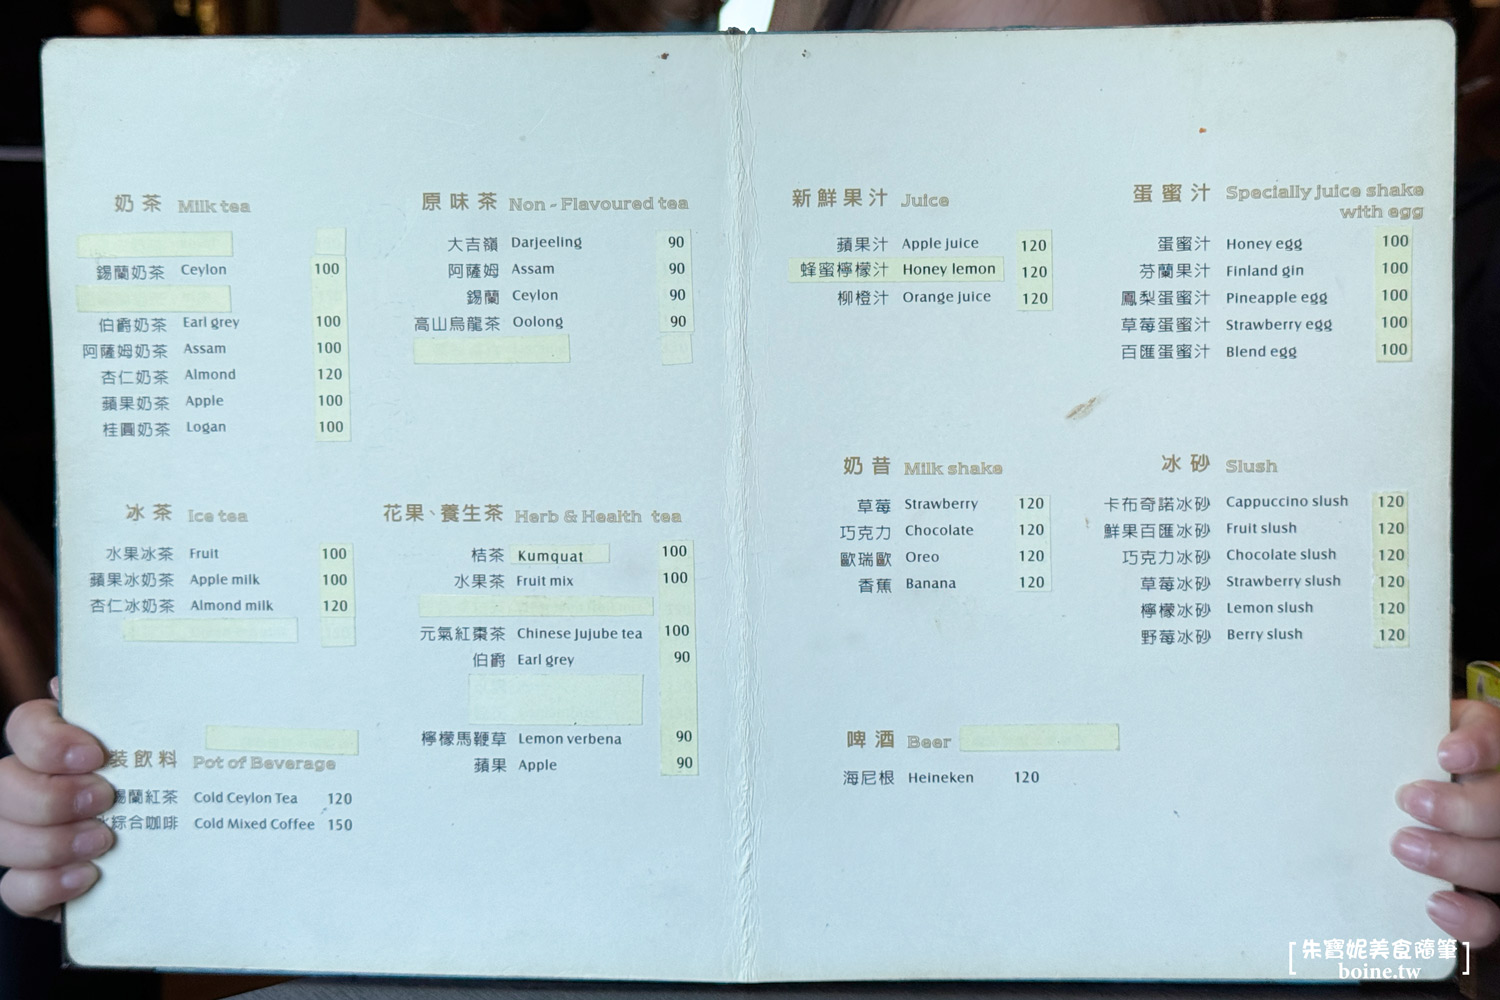 奶茶 Milk tea
錫蘭奶茶 Ceylon 100
伯爵奶茶 Earl grey 100
阿薩姆奶茶 Assam 100
杏仁奶茶 Almond 120
蘋果奶茶 Apple 100
桂圓奶茶 Logan 100
冰茶 Ice tea
水果冰茶 Fruit 100
蘋果冰奶茶 Apple milk 100
杏仁冰奶茶 Almond milk 120
裝飲料 Pot of Beverage
錫蘭紅茶 Cold Ceylon Tea 120
冰綜合咖啡 Cold Mixed Coffee 150
原味茶 Non - Flavoured tea
大吉嶺 Darjeeling 90
阿薩姆 Assam 90
錫蘭 Ceylon 90
高山烏龍茶 Oolong 90
花果、養生茶 Herb & Health tea
桔茶 Kumquat 100
水果茶 Fruit mix 100
元氣紅棗茶 Chinese Jujube tea 100
伯爵 Earl grey 90
檸檬馬鞭草 Lemon verbena 90
蘋果 Apple 90
新鮮果汁 Juice
蘋果汁 Apple juice 120
蜂蜜檸檬汁 Honey lemon 120
柳橙汁 Orange juice 120
奶昔 Milk shake
草莓 Strawberry 120
巧克力 Chocolate 120
歐瑞歐 Oreo 120
香蕉 Banana 120
啤酒 Beer
海尼根 Heineken 120
蛋蜜汁 Specially juice shake
with egg
蛋蜜汁 Honey egg 100
芬蘭果汁 Finland gin 100
鳳梨蛋蜜汁 Pineapple egg 100
草莓蛋蜜汁 Strawberry egg 100
百匯蛋蜜汁 Blend egg 100
冰砂 Slush
卡布奇諾冰砂 Cappuccino slush 120
鮮果百匯冰砂 Fruit slush 120
巧克力冰砂 Chocolate slush 120
草莓冰砂 Strawberry slush 120
檸檬冰砂 Lemon slush 120
野莓冰砂 Berry slush 120
[朱寶妮美食隨筆]
boine.tw